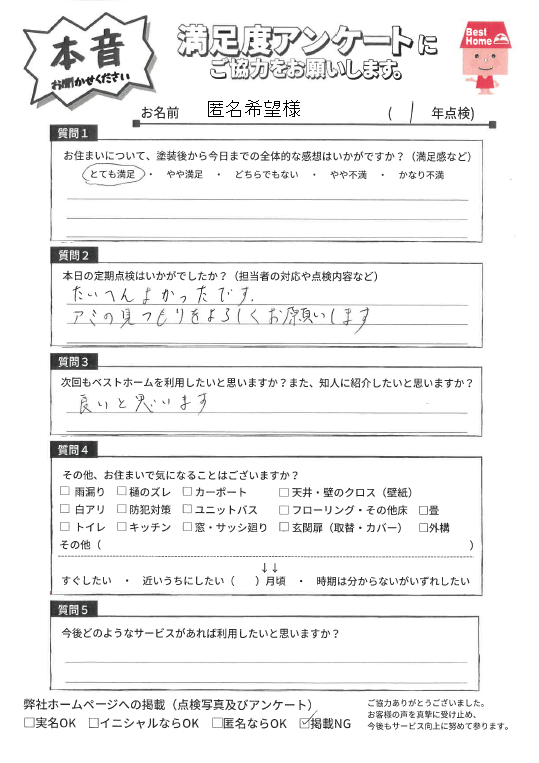 本音
お聞かせください
満足度アンケートに
ご協力をお願いします。
Best
Home
お名前 匿名希望様 ( 1 年点検)
質問1
お住まいについて、塗装後から今日までの全体的な感想はいかがですか？（満足感など）
とても満足 ・ やや満足 ・ どちらでもない ・ やや不満 ・ かなり不満
質問2
本日の定期点検はいかがでしたか？（担当者の対応や点検内容など）
たいへんよかったです.
アミの見つもりをよろしくお願いします
質問3
次回もベストホームを利用したいと思いますか？また、知人に紹介したいと思いますか？
良いと思います
質問4
その他、お住まいで気になることはございますか？
□ 雨漏り □ 樋のズレ □ カーポート □ 天井・壁のクロス（壁紙）
□ 白アリ □ 防犯対策 □ ユニットバス □ フローリング・その他床 □畳
□ トイレ □ キッチン □ 窓・サッシ廻り □ 玄関扉（取替・カバー） □外構
その他（ ）
↓↓
すぐしたい ・ 近いうちにしたい（ ）月頃 ・ 時期は分からないがいずれしたい
質問5
今後どのようなサービスがあれば利用したいと思いますか？
弊社ホームページへの掲載（点検写真及びアンケート）
□実名OK □イニシャルならOK □匿名ならOK ☑掲載NG
ご協力ありがとうございました。
お客様の声を真摯に受け止め、
今後もサービス向上に努めて参ります。